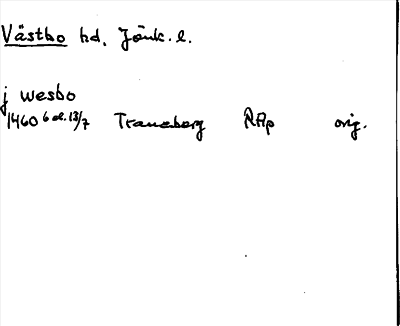 Västbo hd, Jönk. l.
j wesbo
1460 6 el. 13/7 Traneberg RAp orig.